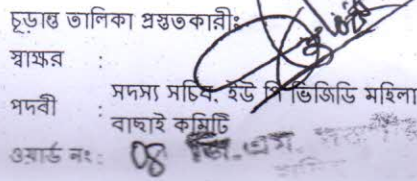 চূড়ান্ত তালিকা প্রস্তুতকারী:
স্বাক্ষর :
পদবী : সদস্য সচিব, ইউ পি ভিজিডি মহিলা
বাছাই কমিটি
ওয়ার্ড নং : 08